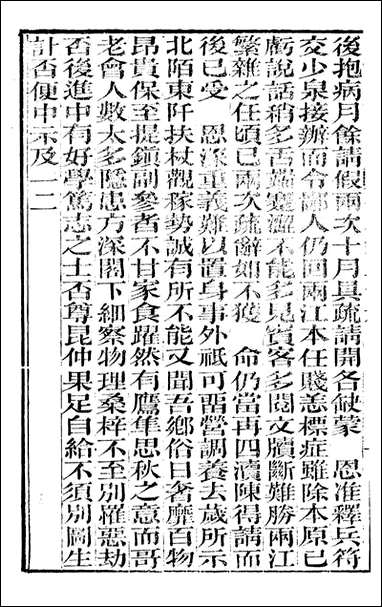 後抱病月餘請假兩次十月具疏請開各缺蒙　恩准釋兵符
交少泉接辦而令鄙人仍回兩江本任賤恙標症雖除本原已
虧說話稍多舌端蹇澀不能多見賓客多閱文牘斷難勝兩江
繁雜之任頃已兩次疏辭如不獲　命仍當再四瀆陳得請而
後已受　恩深重義難以置身事外祗可留營調養去歲所示
北陌東阡扶杖觀稼勢誠有所不能又聞吾鄉俗日奢靡百物
昂貴保至提鎮副參者不甘家食躍然有鷹隼思秋之意而哥
老會人數太多隱患方深閣下細察物理桑梓不至別罹惡劫
否後進中有好學篤志之士否尊昆仲果足自給不須別圖生
計否便中示及一二